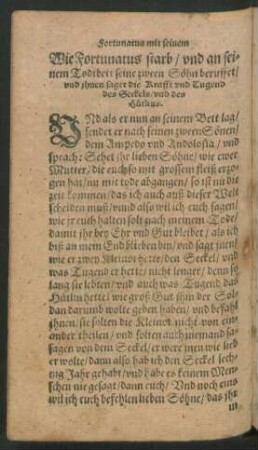 Fortunatus mit seinem
Wie Fortunatus starb / vnd an sei-
nem Todtbett seine zween Söhn beruffet /
vnd ihnen saget die Krafft vnd Tugend
des Seckels / vnd des
Hütlins.
VNd als er nun an seinem Bett lag /
sendet er nach seinen zween Sönen /
dem Ampedo vnd Andolosia / vnd
sprach: Sehet ihr lieben Söhne / wie ewer
Mutter / die euch so mit grossem fleiß erzo-
gen hat / nu mit tode abgangen / so ist nu die
zeit kommen / das ich auch auß dieser Welt
scheiden muß / vnd also wil ich euch sagen /
wie jr euch halten solt nach meinem Tode /
damit jhr bey Ehr vnd Gut bleibet / als ich
biß an mein End blieben bin / vnd sagt jnen /
wie er zwey Kleinot hette / den Seckel / vnd
was Tugend er hette / nicht lenger / denn so
lang sie lebten / vnd auch was Tugend das
Hütlin hette / wie groß Gut jhm der Sol-
dan darumb wolte geben haben / vnd befahl
jhnen / sie solten die Kleinot nicht von ein-
ander theilen / vnd solten auch niemand sa-
sagen von dem Seckel / er were jnen wie lieb
er wolte / dann also hab ich den Seckel sech-
tzig Jahr gehabt / vnd habe es keinem Men-
schen nie gesagt / dann euch / Vnd noch eins
wil ich euch befehlen lieben Söhne / das jhr